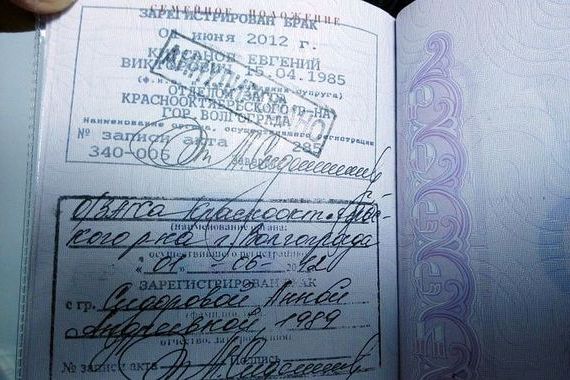 СЕМЕЙНОЕ ПОЛОЖЕНИЕ
ЗАРЕГИСТРИРОВАН БРАК
01 июня 2012 г.
ЕВГЕНИЙ
15.04.1985
ОТДЕЛОМ
КРАСНООКТЯБРЬСКОГО Р-НА
ГОР. ВОЛГОГРАДА
наименование органа, осуществившего регистрацию
№ записи акта 285
340-006
О/ЗАГСа Краснооктябрьс-
кого р-на г. Волгограда
(наименование органа,
осуществившего регистрацию)
"01" - 06 - 2012
ЗАРЕГИСТРИРОВАН БРАК
с гр. Сидоровой Анной
Андреевной, 1989
отчество, дата рожд.
№ записи акта Подпись